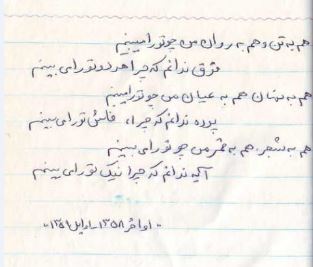 هم به تن و هم به روان من چو تو را میبینم
فرق ندانم که چرا هر دو تو را می بینم
هم به نهان هم به عیان من چو تو را میبینم
پرده ندانم که چرا، فاش تو را می بینم
هم به شجر، هم به ثمر من چو تو را می بینم
آگه ندانم که چرا نیک تو را می بینم
اواخر ۱۳۵۸ - اوایل ۱۳۵۹